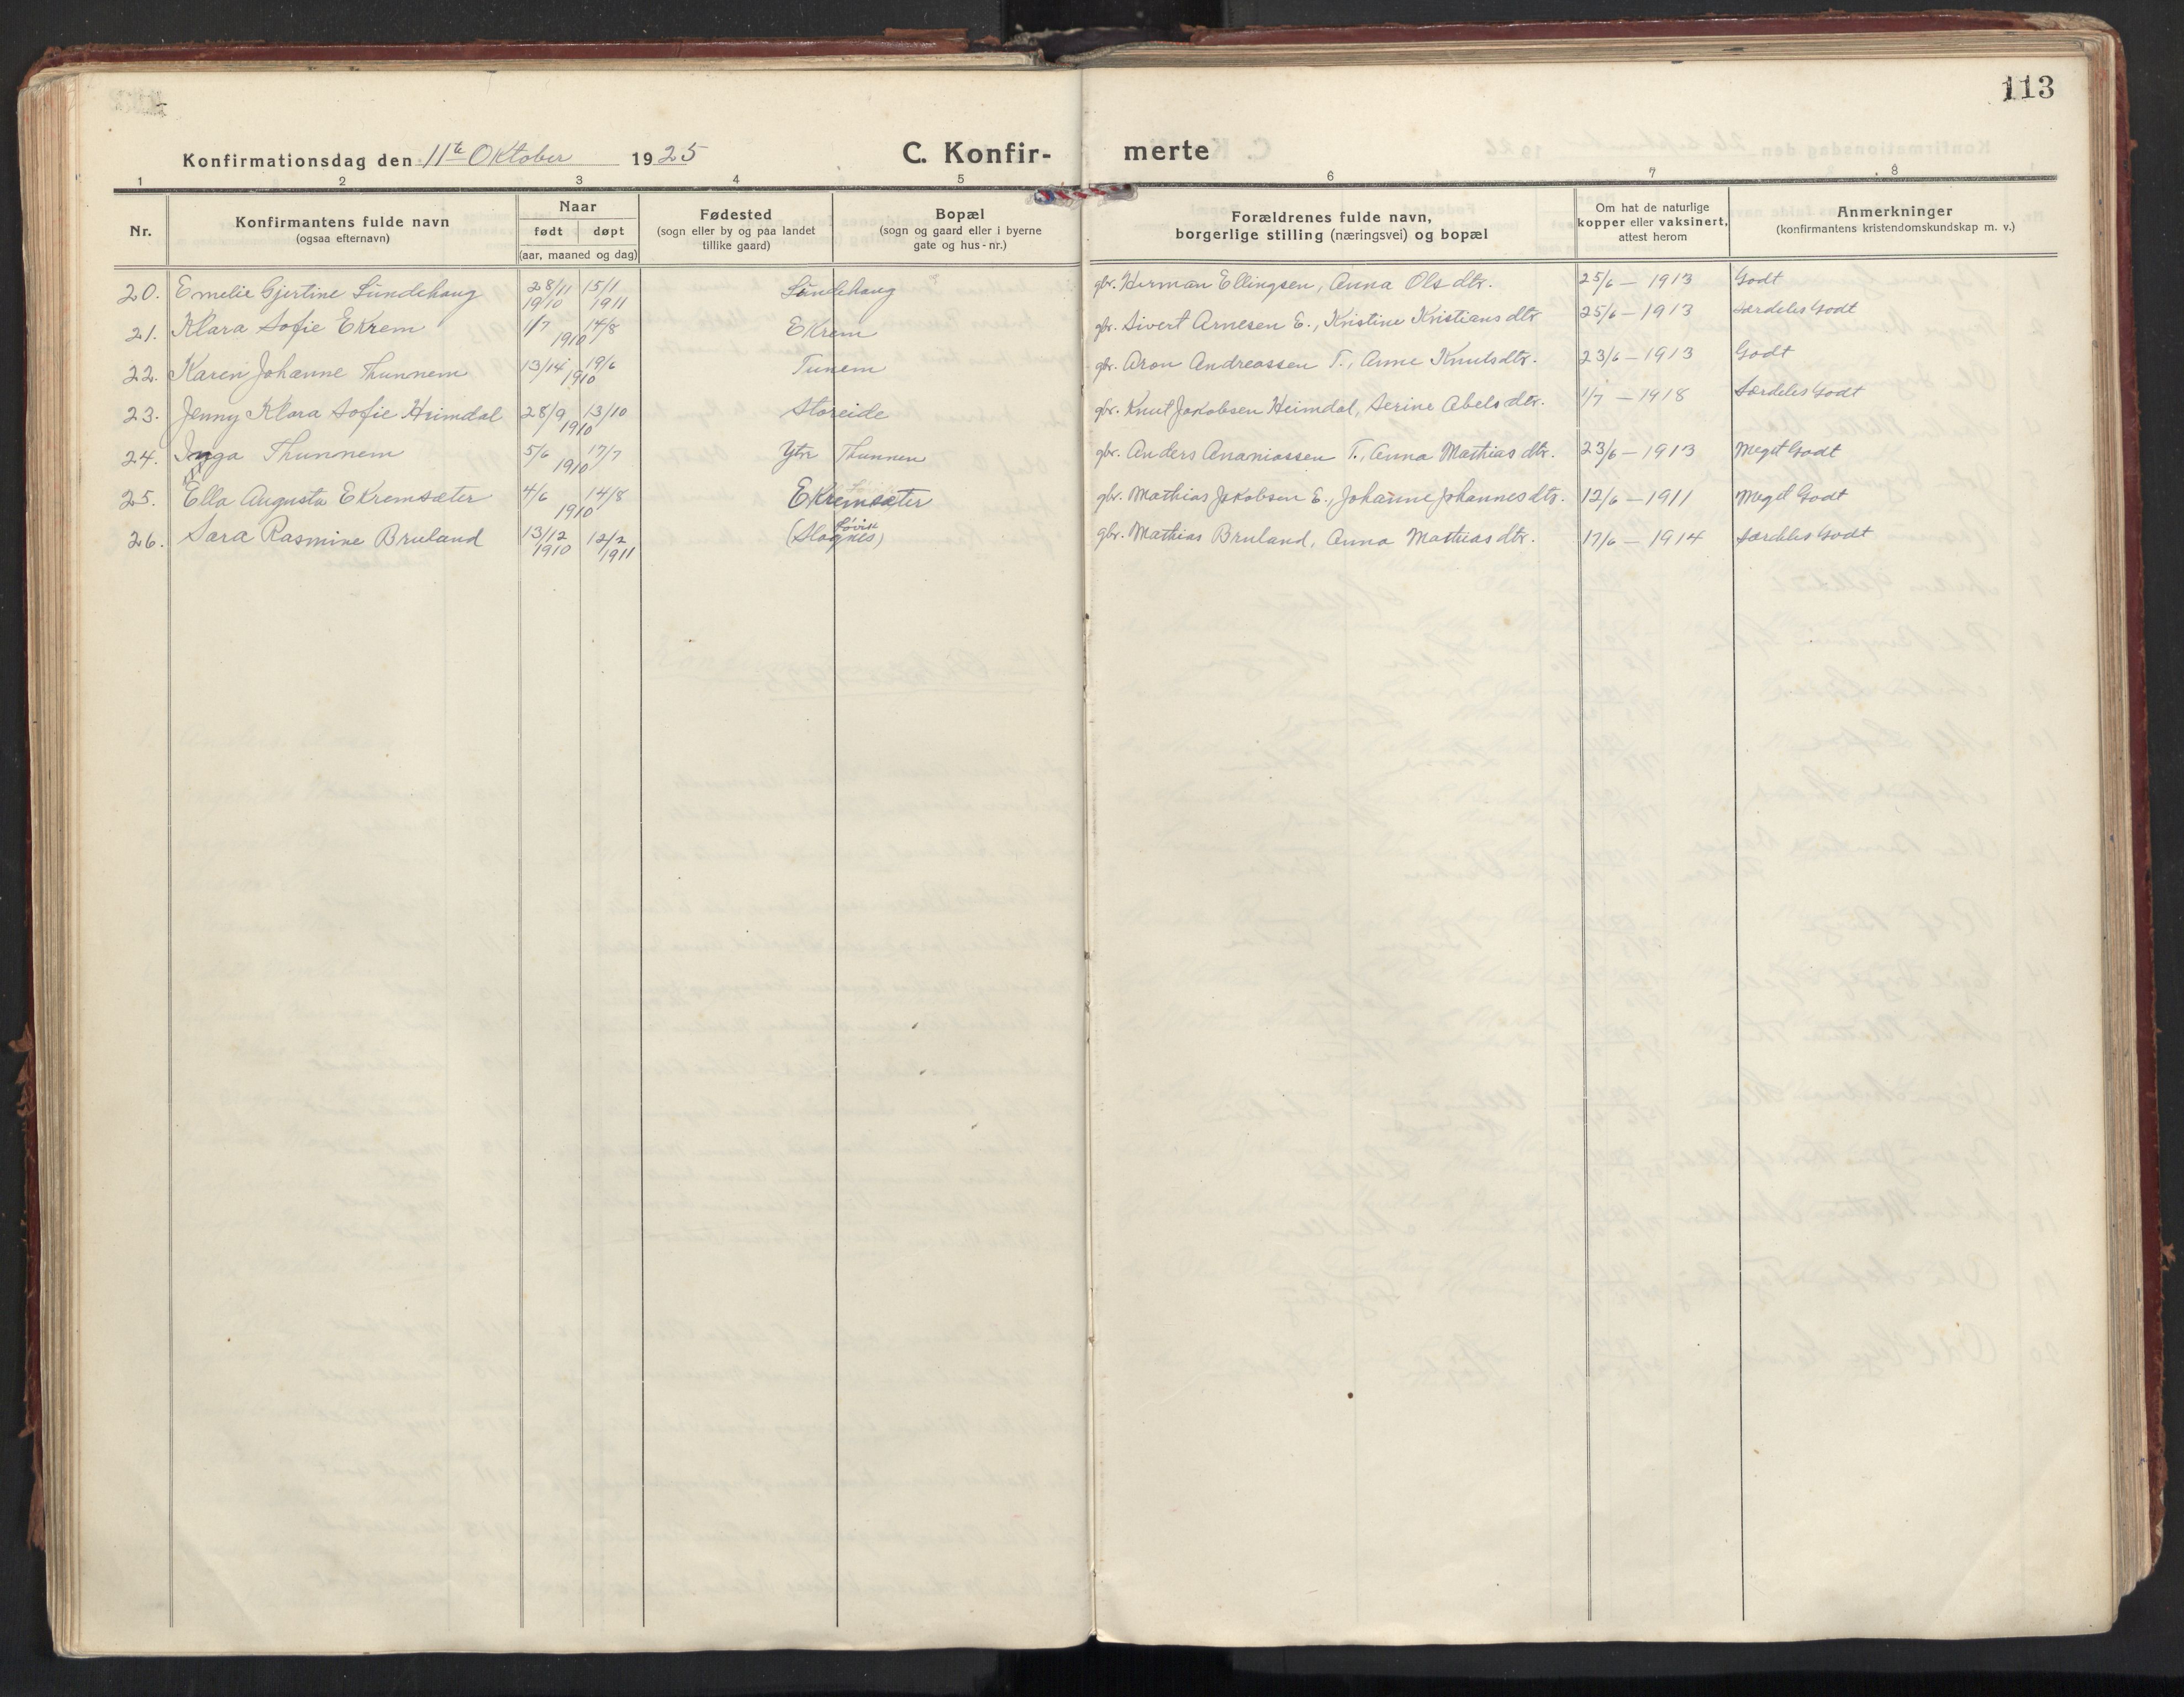 113
Konfirmationsdag den 11te Oktober 1925 C. Konfir- merte
1 2 3 4 5 6 7 8
Nr. Konfirmantens fulde navn (ogsaa efternavn) Naar født døpt (aar, maaned og dag) Fødested (sogn eller by og paa landet tillike gaard) Bopæl (sogn og gaard eller i byerne gate og hus-nr.) Forældrenes fulde navn, borgerlige stilling (næringsvei) og bopæl Om hat de naturlige kopper eller vaksinert, attest herom Anmerkninger (konfirmantens kristendomskundskap m. v.)
20. Emelie Gjertine Sundehaug 28/11 1910 15/1 1911 Sundehaug gbr. Herman Ellingsen, Anna Olsdtr. 25/6 - 1913 Godt
21. Klara Sofie Ekrem 1/7 14/8 1910 Ekrem gbr. Sivert Arnesen E., Kristine Kristiansdtr 25/6 - 1913 Særdeles Godt
22. Karen Johanne Thunnem 13/14 19/6 1910 Tunem gbr. Aron Andreassen T., Anne Knutsdtr. 23/6 - 1913 Godt
23. Jenny Klara Sofie Heimdal 28/9 13/10 1910 Storeide gbr. Knut Jakobsen Heimdal, Serine Abelsdtr. 1/7 - 1918 Særdeles Godt
24. Inga Thunnem 5/6 17/7 1910 Ytre Thunnem gbr. Anders Ananiassen T., Anna Mathiasdtr. 23/6 - 1913 Meget Godt
25. Ella Augusta Ekremsæter 4/6 14/8 1910 Ekremsæter gbr. Mathias Jakobsen E., Johanne Johannesdtr. 12/6 - 1911 Meget Godt
26. Sara Rasmine Bruland 13/12 1910 12/2 1911 Løvik (Slagnes) gbr. Mathias Bruland, Anna Mathiasdtr. 17/6 - 1914 Særdeles Godt